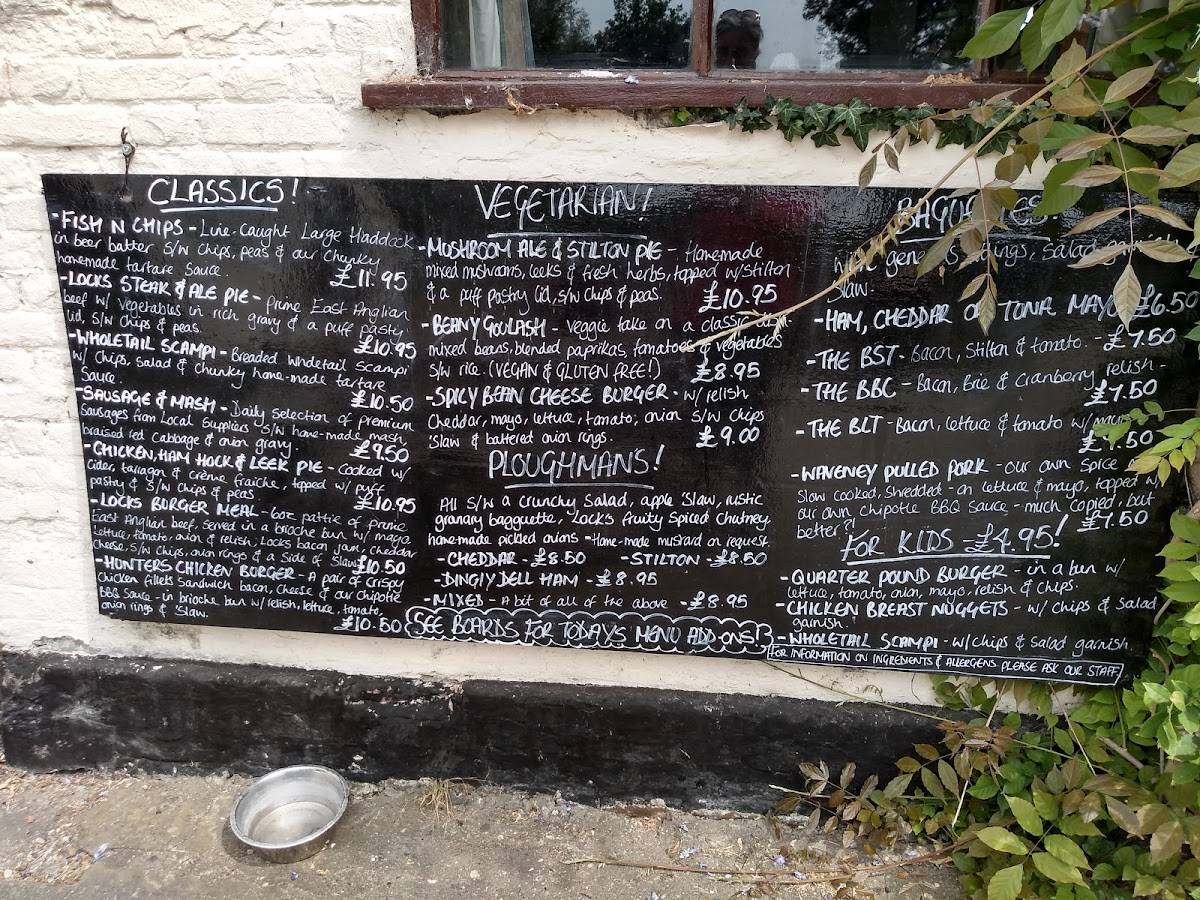 CLASSICS!
-FISH N CHIPS - Line-caught Large Haddock
in beer batter S/W chips, peas & our chunky
homemade tartare sauce. £11.95
-LOCKS STEAK & ALE PIE - prime East Anglian
beef w/ vegetables in rich gravy & a puff pastry
lid, S/W chips & peas. £10.95
-WHOLETAIL SCAMPI - Breaded Whole tail Scampi
w/ chips, salad & chunky home-made tartare
sauce. £10.50
-SAUSAGE & MASH - Daily selection of premium
Sausages from Local Suppliers S/W home-made mash,
braised red cabbage & onion gravy. £9.50
-CHICKEN, HAM HOCK & LEEK PIE - cooked w/
cider, tarragon & crème fraiche, topped w/ puff
pastry & S/W chips & peas £10.95
-LOCKS BURGER MEAL - 6oz pattie of prime
East Anglian beef, served in a brioche bun w/ mayo
lettuce, tomato, onion & relish, Locks bacon jam, cheddar
cheese, S/W chips, onion rings & a side of Slaw £10.50
-HUNTERS CHICKEN BURGER - A pair of crispy
chicken fillets sandwich bacon, cheese & our chipotle
BBQ Sauce - in brioche bun w/ relish, lettuce, tomato,
onion rings & 'slaw. £10.50
VEGETARIAN!
-MUSHROOM ALE & STILTON PIE - Homemade
mixed mushrooms, leeks & fresh herbs, topped w/ Stilton
& a puff pastry lid, S/W chips & peas. £10.95
-BEANY GOULASH - Veggie take on a classic
mixed beans, blended paprikas, tomatoes & vegetables
S/W rice. (VEGAN & GLUTEN FREE!) £8.95
-SPICY BEAN CHEESE BURGER - w/ relish
Cheddar, mayo, lettuce, tomato, onion S/W chips
'slaw & battered onion rings. £9.00
PLOUGHMAN'S!
All S/W a crunchy salad, apple 'slaw, rustic
granary bagguette, Lock's fruity spiced chutney,
homemade pickled onions - Home-made mustard on request
-CHEDDAR - £8.50 -STILTON - £8.50
-DINGLY DELL HAM - £8.95
-MIXED - A bit of all of the above - £8.95
SEE BOARDS FOR TODAYS MENU ADD-ONS!
Salad
Slaw.
-HAM, CHEDDAR OR TUNA MAYO £6.50
-THE BST - Bacon, Stilton & tomato. - £7.50
-THE BBC - Bacon, Brie & Cranberry relish -
£7.50
-THE BLT - Bacon, lettuce & tomato w/
-WAVENEY PULLED PORK - our own spice
Slow cooked, shredded - on lettuce & mayo, topped w/
our own chipotle BBQ Sauce - much copied, but
better?! £7.50
FOR KIDS - £4.95!
-QUARTER POUND BURGER - in a bun w/
lettuce, tomato, onion, mayo, relish & chips.
-CHICKEN BREAST NUGGETS - w/ chips & Salad
garnish.
-WHOLETAIL SCAMPI - w/ chips & salad garnish.
FOR INFORMATION ON INGREDIENTS & ALLERGENS PLEASE ASK OUR STAFF